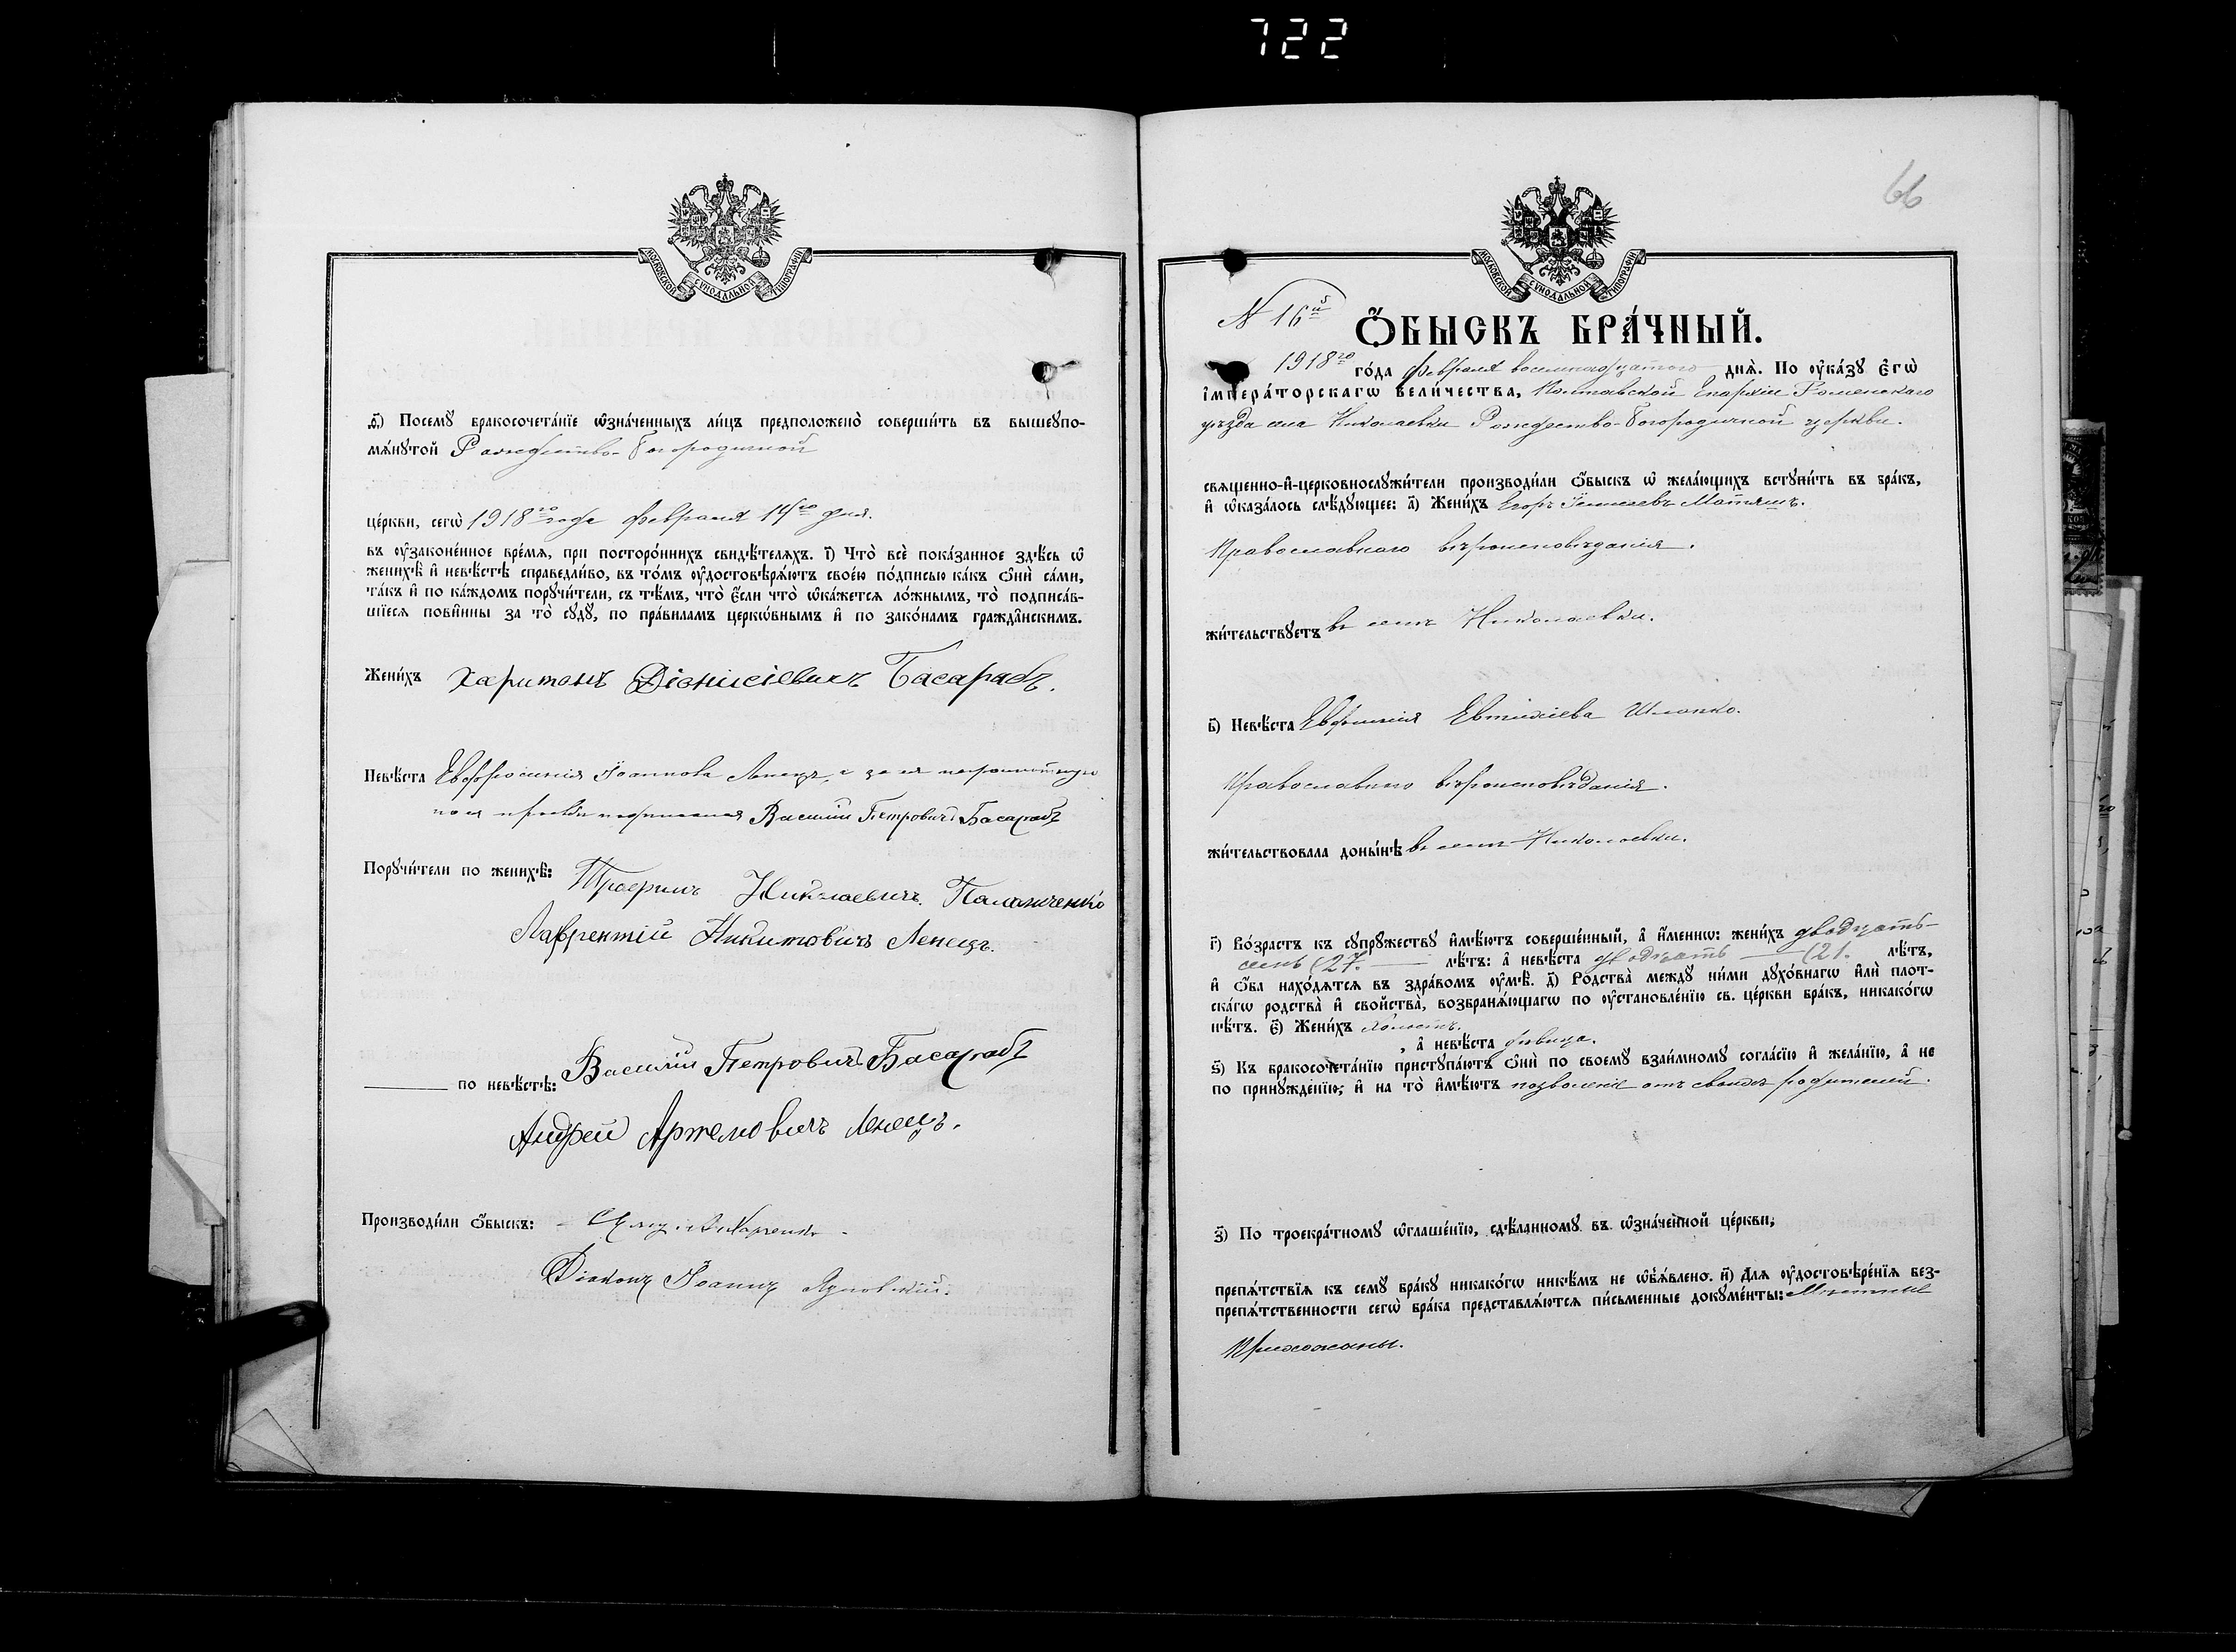 722
МОСКОВСКОЙ СѴНОДАЛЬНОЙ ТИПОГРАФІИ
ѳ҃) Посемꙋ бракосочета́нїе ѡ҆зна́ченныхъ ли́цъ предположено̀ соверши́ть въ вышеꙋпо-
мѧ́нꙋтой Рождество-Богородичной
це́ркви, сегѡ̀ 1918го года февраля 19го дня.
въ ᲂу҆законе́нное вре́мѧ, при посторо́ннихъ свидѣ́телѧхъ. і҃) Что̀ всѐ пока́занное здѣ́сь ѡ҆
женихѣ̀ и҆ невѣ́стѣ справедли́во, въ то́мъ ᲂу҆достовѣрѧ́ютъ свое́ю по́дписью ка́къ ѻ҆нѝ са́ми,
та́къ и҆ по ка́ждомъ порꙋчи́тели, съ тѣ́мъ, что̀ є҆́сли что̀ ѡ҆ка́жетсѧ ло́жнымъ, то̀ подписа́в-
шїесѧ пови́нны за то̀ сꙋдꙋ̀, по пра́виламъ церкѡ́внымъ и҆ по зако́намъ гражда́нскимъ.
Жени́хъ Харитонъ Діонисіевичъ Басарабъ.
Невѣ́ста Евфросинія Іоаннова Ленецъ, а за ея неграмотную
по ея просьбе Василий Петровичъ Басарабъ
Порꙋчи́тели по женихѣ̀: Трофимъ Николаевичъ
Лаврентій Никитовичъ Ленецъ.
по невѣ́стѣ: Василий Петровичъ Басарабъ
Андрей Артемовичъ Ленецъ.
Производи́ли ѻ҆́быскъ:
Діаконъ Іоаннъ
66
МОСКОВСКОЙ СѴНОДАЛЬНОЙ ТИПОГРАФІИ
N 16й
Ѻ҆́БЫСКЪ БРА́ЧНЫЙ.
1918го го́да февраля восемнадцатого днѧ̀. По ᲂу҆ка́зꙋ Є҆гѡ̀
і҆мпера́торскагѡ вели́чества, Полтавской Епархіи Роменскаго
уѣзда села Николаевки Рождество-Богородичной церкви.
свѧщенно-и҆-церковнослꙋжи́тели производи́ли ѻ҆́быскъ ѡ҆ жела́ющихъ встꙋпи́ть въ бра́къ,
и҆ ѡ҆каза́лось слѣ́дꙋющее: а҃) Жени́хъ Егоръ Матяшъ.
Православнаго вѣроисповѣданія.
жи́тельствꙋетъ въ селѣ Николаевки.
в҃) Невѣ́ста Евфимія Евтихіева Шлапко.
Православнаго вѣроисповѣданія.
жи́тельствовала доны́нѣ въ селѣ Николаевки.
г҃) Во́зрастъ къ сꙋпрꙋ́жествꙋ и҆мѣ́ютъ соверше́нный, а҆ и҆́меннѡ: жени́хъ двадцать
семь (27. лѣ́тъ: а҆ невѣ́ста двадцать (21. лѣ́тъ,
и҆ ѻ҆́ба нахо́дѧтсѧ въ здра́вомъ ᲂу҆мѣ̀. д҃) Родства̀ междꙋ̀ ни́ми дꙋхо́внагѡ и҆лѝ плот-
ска́гѡ родства̀ и҆ сво́йства̀, возбранѧ́ющагѡ по ᲂу҆становле́нїю св. це́ркви бра́къ, никако́гѡ
нѣ́тъ. є҃) Жени́хъ холостъ.
, а҆ невѣ́ста дѣвица.
ѕ҃) Къ бракосочета́нїю пристꙋпа́ютъ ѻ҆нѝ по своемꙋ̀ взаи́мномꙋ согла́сїю и҆ жела́нїю, а҆ не
по принꙋжде́нїю; и҆ на то̀ и҆мѣ́ютъ позволеніе отъ своихъ родителей.
з҃) По троекра́тномꙋ ѡ҆глаше́нїю, сдѣ́ланномꙋ въ ѡ҆зна́ченной це́ркви,
препѧ́тствїѧ къ семꙋ̀ бра́кꙋ никако́гѡ никѣ́мъ не ѡ҆б̾ѧ́влено. и҃) Длѧ ᲂу҆достовѣре́нїѧ без-
препѧ́тственности сегѡ̀ бра́ка представлѧ́ютсѧ пи́сьменные докꙋме́нты: Мѣстные
Прихожаны.